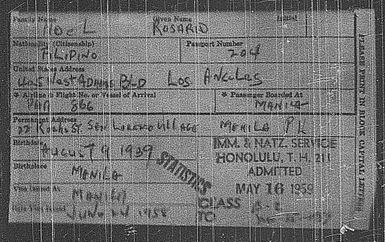 Family Name Given Name Initial
ROSARIO
Nationality (Citizenship) Passport Number
FILIPINO 204
United States Address
West ADAMS BLD LOS ANGELES
Airline & Flight No. or Vessel of Arrival * Passenger Boarded At
PAA 866 MANILA
Permanent Address
San Lorenzo Village MANILA P.I.
Birthdate
AUGUST 9 1939
Birthplace
MANILA
Visa Issued At
MANILA
Date Visa Issued
JUNE 1958
STATISTICS
IMM. & NATZ. SERVICE
HONOLULU, T. H. 211
ADMITTED
MAY 16 1959
CLASS
TO
PLEASE PRINT IN BLOCK CAPITAL LETTERS